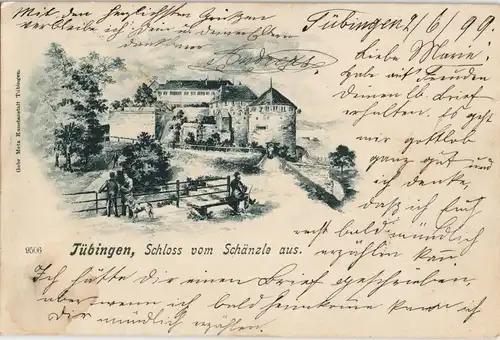 Tübingen 2/6/99.
Liebe Marie!
habe mit Freuden
deinen lb. Brief
erhalten. Es geht
mir gottlob
ganz gut und
ich denke,
dass ich Euch
recht bald mündlich
erzählen kan
Ich hätte dir einen Brief geschrieben,
aber wenn ich bald heimkome kann ich
dir mündlich erzählen.
Mit den herzlichsten Grüßen
verbleibe ich Dein
dankbarer
Gebr Metz Kunstanstalt Tübingen.
9506
Tübingen, Schloss vom Schänzle aus.